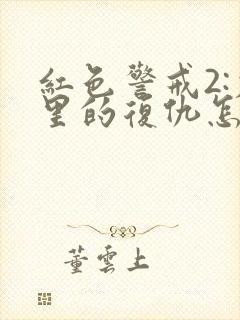 紅色警戒2:
里的復仇怎
董雲上